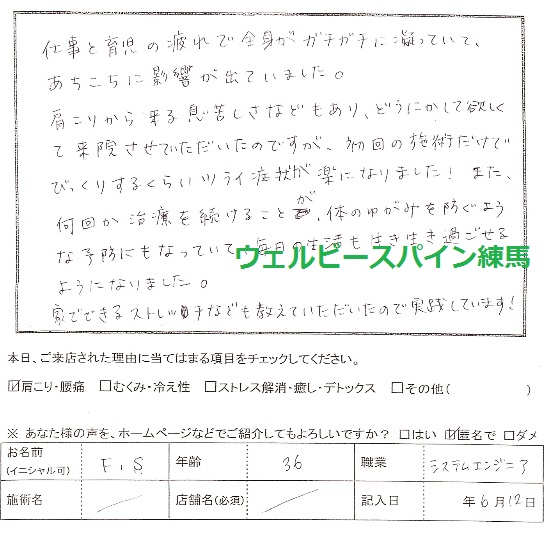 仕事と育児の疲れで全身がガチガチに凝っていて、
あちこちに影響が出ていました。
肩こりから来る息苦しさなどもあり、どうにかして欲しく
て来院させていただいたのですが、初回の施術だけで
びっくりするくらいツライ症状が楽になりました！また、
何回か治療を続けることが、体のゆがみを防ぐよう
な予防にもなっていて、毎日の生活も生き生き過ごせる
ウェルビースパイン練馬
ようになりました。
家でできるストレッチなども教えていただいたので実践しています！
本日、ご来店された理由に当てはまる項目をチェックしてください。
☑肩こり・腰痛 □むくみ・冷え性 □ストレス解消・癒し・デトックス □その他( )
※ あなた様の声を、ホームページなどでご紹介してもよろしいですか？ □はい ☑匿名で □ダメ
お名前 F.S 年齢 36 職業 システムエンジニア
(イニシャル可)
施術名 店舗名(必須) 記入日 年6月12日